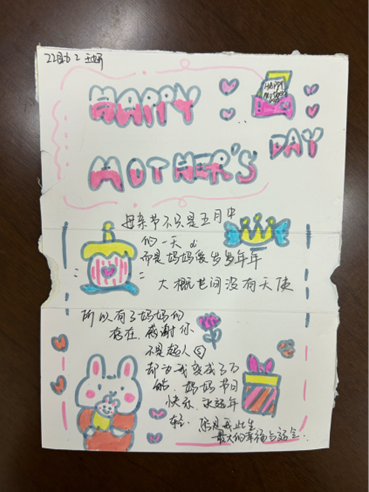 HAPPY
HAPPY
MOTHER'S DAY
母亲节不只是五月中
的一天
而是妈妈爱岁岁年年
大概世间没有天使
所以有了妈妈的
存在 感谢你
不是超人
却为我变成了万
能 妈妈节日
快乐 永远年
轻 您是我此生
最大的幸福与